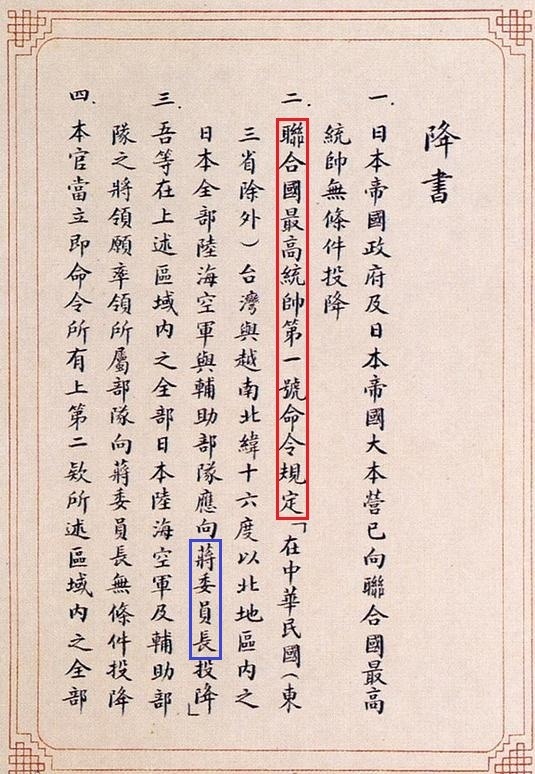 降書
一.日本帝國政府及日本帝國大本營已向聯合國最高
統帥無條件投降
二.聯合國最高統帥第一號命令規定「在中華民國(東
三省除外)台灣與越南北緯十六度以北地區內之
日本全部陸海空軍與輔助部隊應向蔣委員長投降」
三.吾等在上述區域內之全部日本陸海空軍及輔助部
隊之將領願率領所屬部隊向蔣委員長無條件投降
四.本官當立即命令所有上第二欵所述區域內之全部